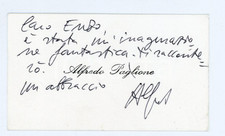 Caro Endo
è stata un'immaginazio
ne fantastica. Ti racconte
rò.
Alfredo Paglione
un abbraccio
Alfredo